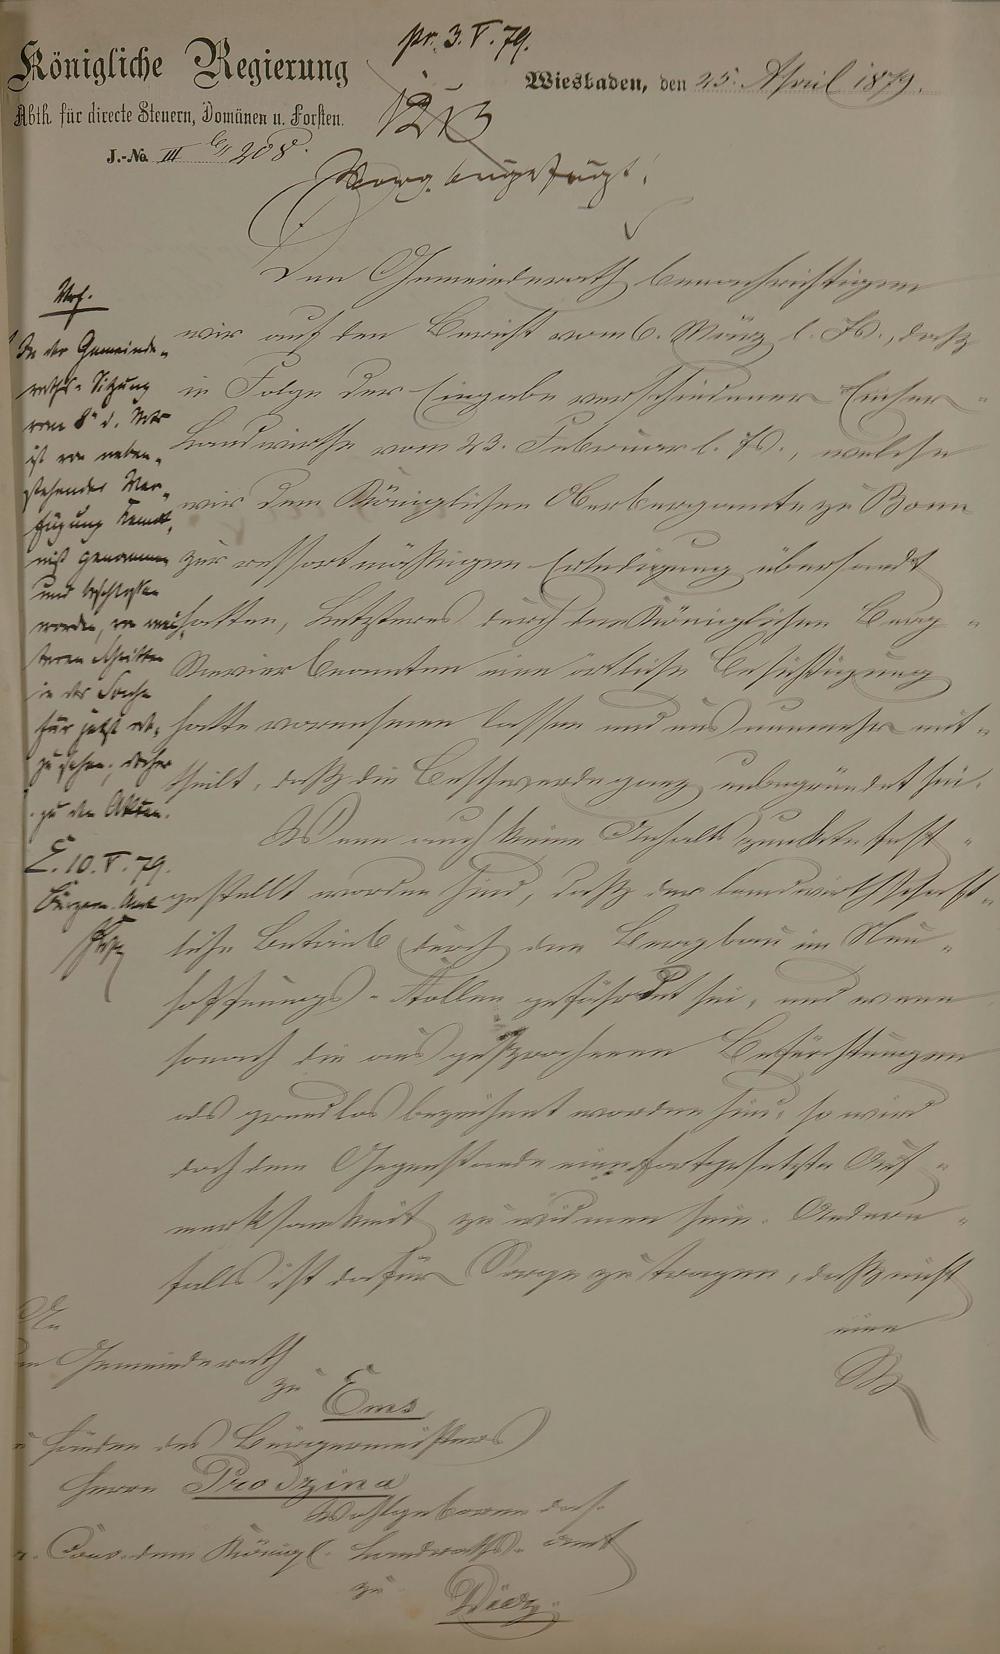 Königliche Regierung
Abth. für directe Steuern, Domänen u. Forsten.
J.-No. III 208.
pr. 3. V. 79.
Wiesbaden, den 25. April 1879.
Vorg. beigefügt!
Den Gemeinderath benachrichtigen
wir auf den Bericht vom 6. März l. Js., daß
in Folge der Eingabe verschiedener Emser-
Landwirthe vom 23. Februar l. Js., welche
wir dem Königlichen Oberbergamte zu Bonn
zur ressortmäßigen Erledigung übersandt
hatten, Letzteres durch den Königlichen Berg-
Revierbeamten eine örtliche Besichtigung
hatte vornehmen lassen und uns nunmehr mit-
theilt, daß die Beschwerde ganz unbegründet sei.
Wenn auch keine Anhaltspunkte fest-
gestellt worden sind, daß der landwirthschaft-
liche Betrieb durch den Bergbau im Neu-
hoffnungs-Stollen gefährdet sei, und wenn
sonach die ausgesprochenen Befürchtungen
als grundlos bezeichnet worden sind, so wird
doch dem Gegenstande eine fortgesetzte Auf-
merksamkeit zu widmen sein. Andern-
falls ist dafür Sorge zu tragen, daß nicht
eine
Vrf.
In der Gemeinde-
raths-Sitzung
vom 8. d. Mts
ist von neben-
stehender Ver-
fügung Kennt-
niß genommen
und beschlossen
worden, von wei-
teren Schritten
in der Sache
für jetzt ab-
zusehen; daher
zu den Akten.
E. 10. V. 79.
An
Gemeinderath
zu
Ems
Händen des Bürgermeisters
Herrn
Wohlgeboren das.
dem Königl. Landraths-Amt
zu
Diez.